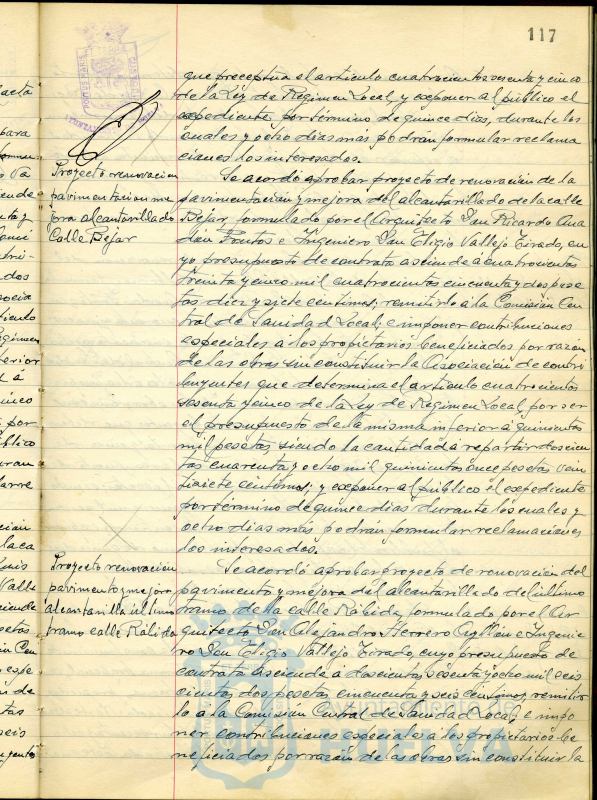 117
que preceptua el articulo cuatrocientos sesenta y cinco
de la Ley de Regimen Local, y exponer al público el
expediente por término de quince dias, durante los
cuales y ocho dias mas podrán formular reclama
ciones los interesados.
Proyecto renovacion
pavimentacion me
jora alcantarillado
Calle Bejar
Se acordó aprobar proyecto de renovación de la
pavimentación y mejora del alcantarillado de la calle
Bejar, formulado por el Arquitecto Don Ricardo Ana
dón Frutos e Ingeniero Don Eligio Vallejo Tirado, cu
yo presupuesto de contrata asciende a cuatrocientas
treinta y cinco mil cuatrocientas cincuenta y dos pese
tas diez y siete centimos; remitirlo á la Comisión Cen
tral de Sanidad Local; e imponer contribuciones
especiales á los propietarios beneficiados por razón
de las obras sin constituir la Asociación de contri
buyentes que determina el articulo cuatrocientos
sesenta y cinco de la Ley de Regimen Local, por ser
el presupuesto de la misma inferior á quinientas
mil pesetas, siendo la cantidad á repartir doscien
tas cuarenta y ocho mil quinientas once pesetas vein
tisiete centimos; y exponer al público el expediente
por término de quince dias durante los cuales y
ocho dias más podrán formular reclamaciones
los interesados.
Proyecto renovacion
pavimento y mejora
alcantarilla último
tramo calle Rábida
Se acordó aprobar proyecto de renovación del
pavimento y mejora del alcantarillado del último
tramo de la calle Rábida, formulado por el Ar
quitecto Don Alejandro Herrero Ayllon e Ingenie
ro Don Eligio Vallejo Tirado, cuyo presupuesto de
contrata asciende á doscientas sesenta y ocho mil seis
cientas dos pesetas cincuenta y seis centimos, remitir
lo a la Comisión Central de Sanidad Local, e impo
ner contribuciones especiales á los propietarios be
neficiados por razón de las obras sin constituir la
Ayuntamiento de
HUELVA